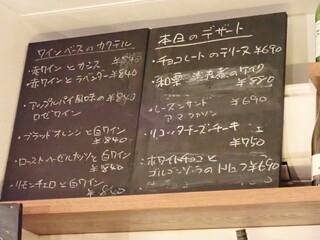 ワインベースのカクテル
・赤ワインとカシス ¥840
・赤ワインとラベンダー ¥840
・アップルパイ風味の ¥840
ロゼワイン
・ブラッドオレンジと白ワイン
¥840
・ローストヘーゼルナッツと白ワイン
¥840
・リモンチェロと白ワイン
¥840
本日のデザート
・チョコレートのテリーヌ ¥690
・和栗 のケイク
・レーズンサンド ¥690
・リコッタチーズケーキ
¥750
・ホワイトチョコと
ゴルゴンゾーラのトリュフ ¥690